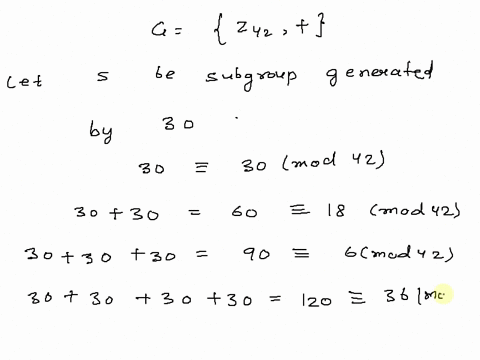 G = { Z42 , + }
Let s be subgroup generated
by 30 .
30 ≡ 30 (mod 42)
30 + 30 = 60 ≡ 18 (mod 42)
30 + 30 + 30 = 90 ≡ 6 (mod 42)
30 + 30 + 30 + 30 = 120 ≡ 36 (mo